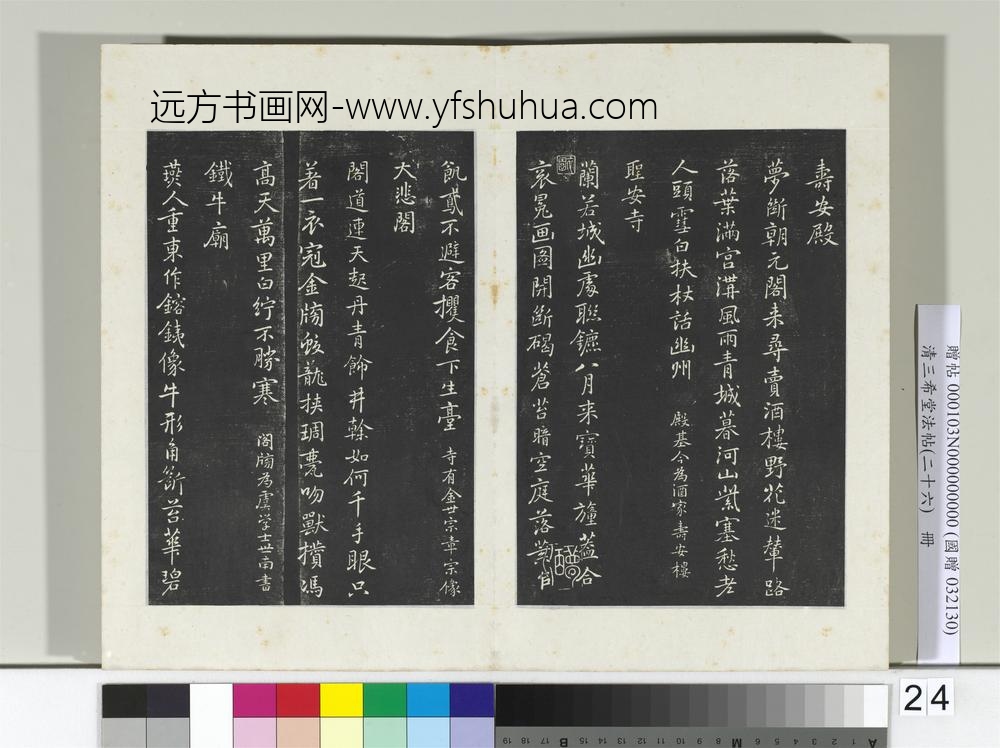 远方书画网-www.yfshuhua.com
壽安殿
夢斷朝元閣来尋賣酒樓野花迷輦路
落葉滿宫溝風雨青城暮河山紫塞愁老
人頭雪白扶杖話幽州 殿基今為酒家壽安樓
聖安寺
蘭若城幽處聯鑣八月来寳華幢盖合
衮冕画圖開斷碣蒼苔暗空庭落葉
飢鳶不避客攫食下生臺 寺有金世宗章宗像
大悲閣
閣道連天起丹青飾井榦如何千手眼只
着一衣冠金牓蛟龍挟琱甍吻獸攢馮
高天萬里白紵不勝寒 閣牓為虞学士世南書
鐵牛廟
燕人重東作鎔鐵像牛形角斷苔華碧
贈帖 000103N000000000 (國贈 032130)
清三希堂法帖(二十六) 冊
24
A 1 2 3 4 5 6 M 8 9 10 11 12 13 14 15 B 17 18 19